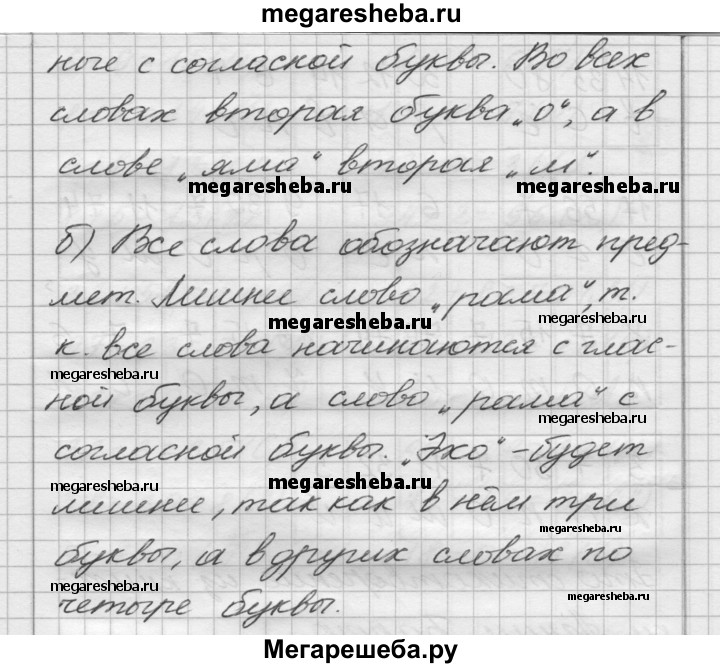 megaresheba.ru
ные с согласной буквы. Во всех
словах вторая буква „о“, а в
слове „яма“ вторая „м“.
megaresheba.ru megaresheba.ru
б) Все слова обозначают пред-
мет. Лишнее слово „рама“, т.
megaresheba.ru megaresheba.ru
к. все слова начинаются с глас-
megaresheba.ru
ной буквы, а слово „рама“ с
megaresheba.ru
согласной буквы. „Эхо“ - будет
megaresheba.ru megaresheba.ru
лишнее, так как в нём три
megaresheba.ru
буквы, а в других словах по
megaresheba.ru megaresheba.ru
четыре буквы.
Мегарешеба.ру